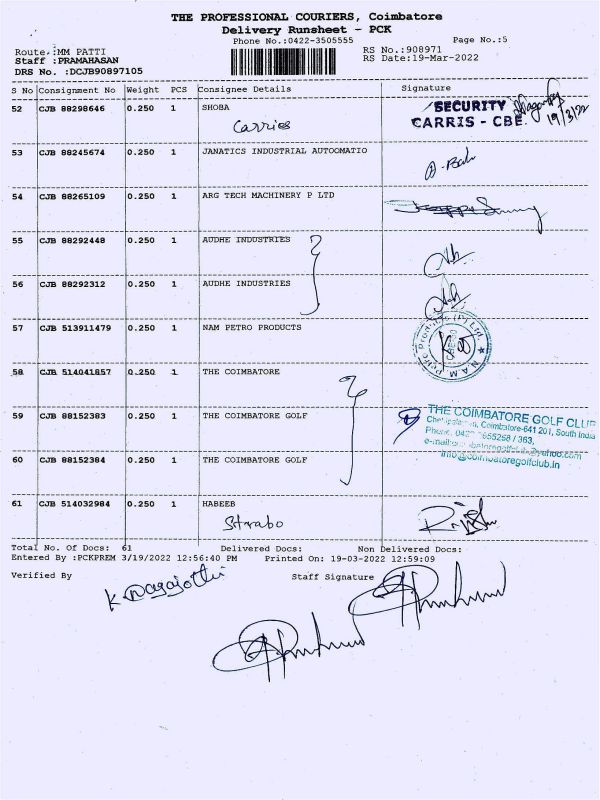 THE PROFESSIONAL COURIERS, Coimbatore
Delivery Runsheet - PCK
Phone No.:0422-3505555
Page No.:5
Route :MM PATTI
RS No.:908971
Staff :PRAMAHASAN
RS Date:19-Mar-2022
DRS No. :DCJB90897105
S No Consignment No Weight PCS Consignee Details Signature
52 CJB 88298646 0.250 1 SHOBA
Carries
SECURITY
CARRIS - CBE
19/3/22
53 CJB 88245674 0.250 1 JANATICS INDUSTRIAL AUTOOMATIO
54 CJB 88265109 0.250 1 ARG TECH MACHINERY P LTD
55 CJB 88292448 0.250 1 AUDHE INDUSTRIES
56 CJB 88292312 0.250 1 AUDHE INDUSTRIES
57 CJB 513911479 0.250 1 NAM PETRO PRODUCTS
NAM Petro Products (P) Ltd.
58 CJB 514041857 0.250 1 THE COIMBATORE
59 CJB 88152383 0.250 1 THE COIMBATORE GOLF
THE COIMBATORE GOLF CLUB
Coimbatore-641 201, South India
60 CJB 88152384 0.250 1 THE COIMBATORE GOLF
info@coimbatoregolfclub.in
61 CJB 514032984 0.250 1 HABEEB
Starabo
Total No. Of Docs: 61 Delivered Docs: Non Delivered Docs:
Entered By :PCKPREM 3/19/2022 12:56:40 PM Printed On: 19-03-2022 12:59:09
Verified By Staff Signature
K. Nagajothi